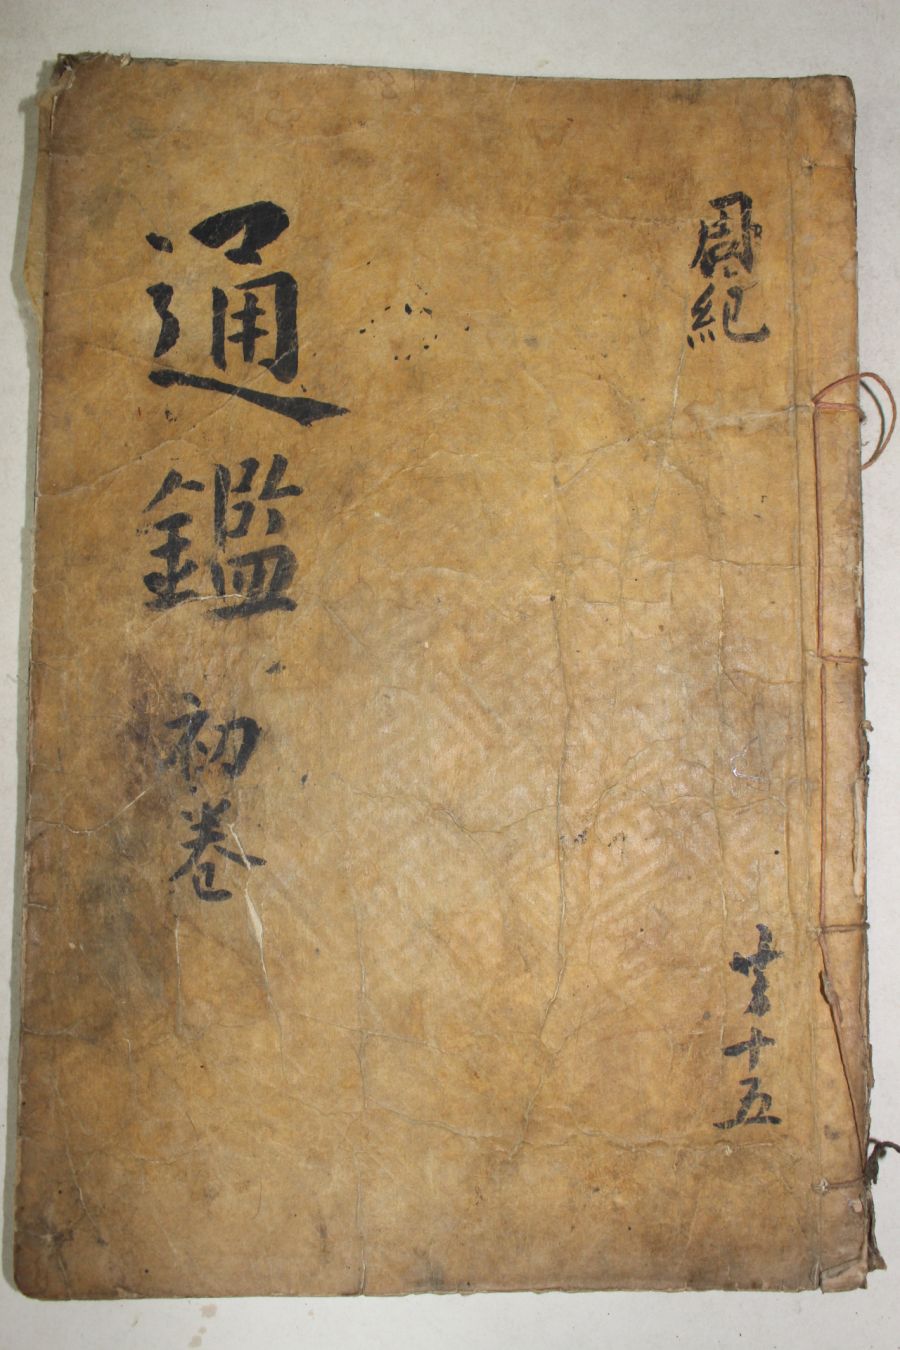 周紀
共十五
通鑑 初卷